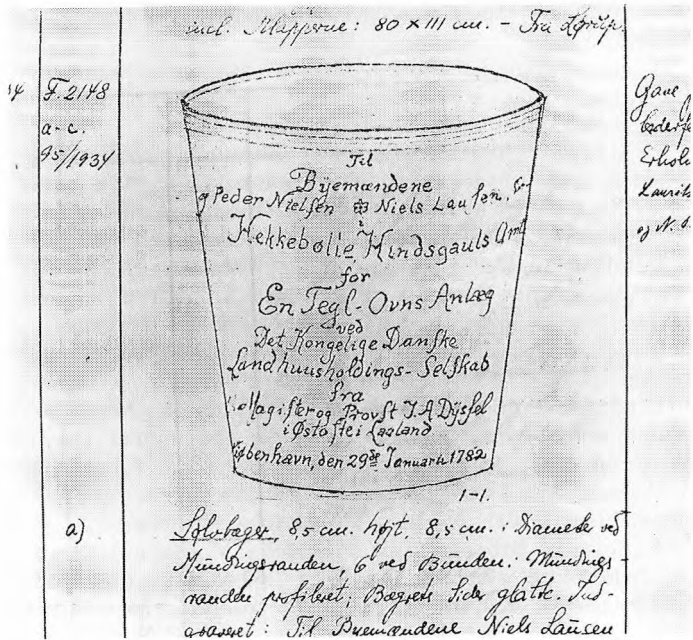 incl. Mapperne: 80 x 111 cm. - Fra
F. 2148
a-c.
95/1934
Gave
Erhol
Laurits
og N.
Til
Byemændene
Peder Nielsen Niels Lausen,
i
Hekkebølle, Hindsgauls Amt
for
En Tegl-Ovns Anlæg
ved
Det Kongelige Danske
Landhuusholdings-Selskab
fra
Magister og Provst J. A Dyssel
i Østofte i Laaland
Kiøbenhavn, den 29de Januarii 1782
1-1.
a) Sølvbæger, 8,5 cm. højt, 8,5 cm. i Diameter ved
Mündingsranden, 6 ved Bunden. Mündings
randen profileret; Bægrets Sider glatte. Ind-
graveret: Til Byemændene Niels Lausen